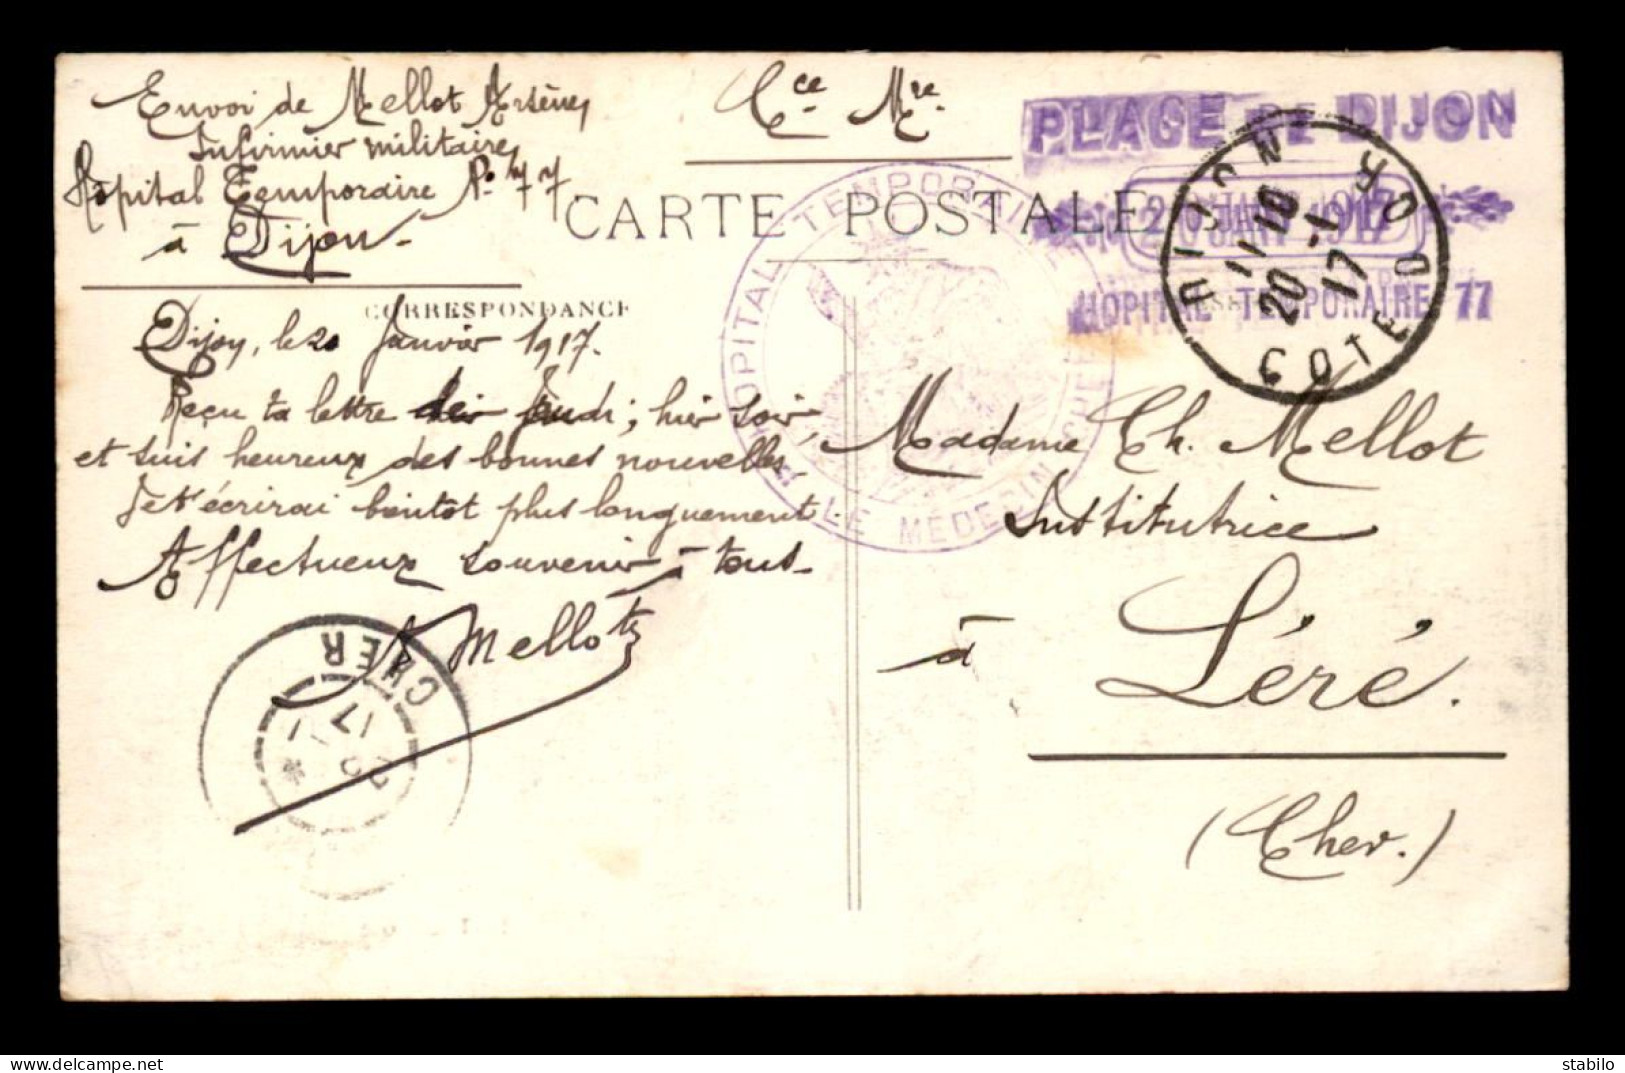 Envoi de Mellot Arsène,
Infirmier militaire,
Hôpital Temporaire No 77.
à Dijon-
Cce Mre
PLACE DE DIJON
20 JANV 1917
HOPITAL TEMPORAIRE 77
DIJON COTE D'OR
11-10
20-1
17
CARTE POSTALE
HOPITAL TEMPORAIRE
LE MÉDECIN CHEF
CORRESPONDANCE
Dijon, le 20 Janvier 1917.
Reçu ta lettre jeudi; hier soir,
et suis heureux des bonnes nouvelles.
Je t'écrirai bientot plus longuement.
Affectueux souvenir à tous-
A Mellot
CHER
17
Madame Ch. Mellot
Institutrice
à Léré.
(Cher.)
stabilo